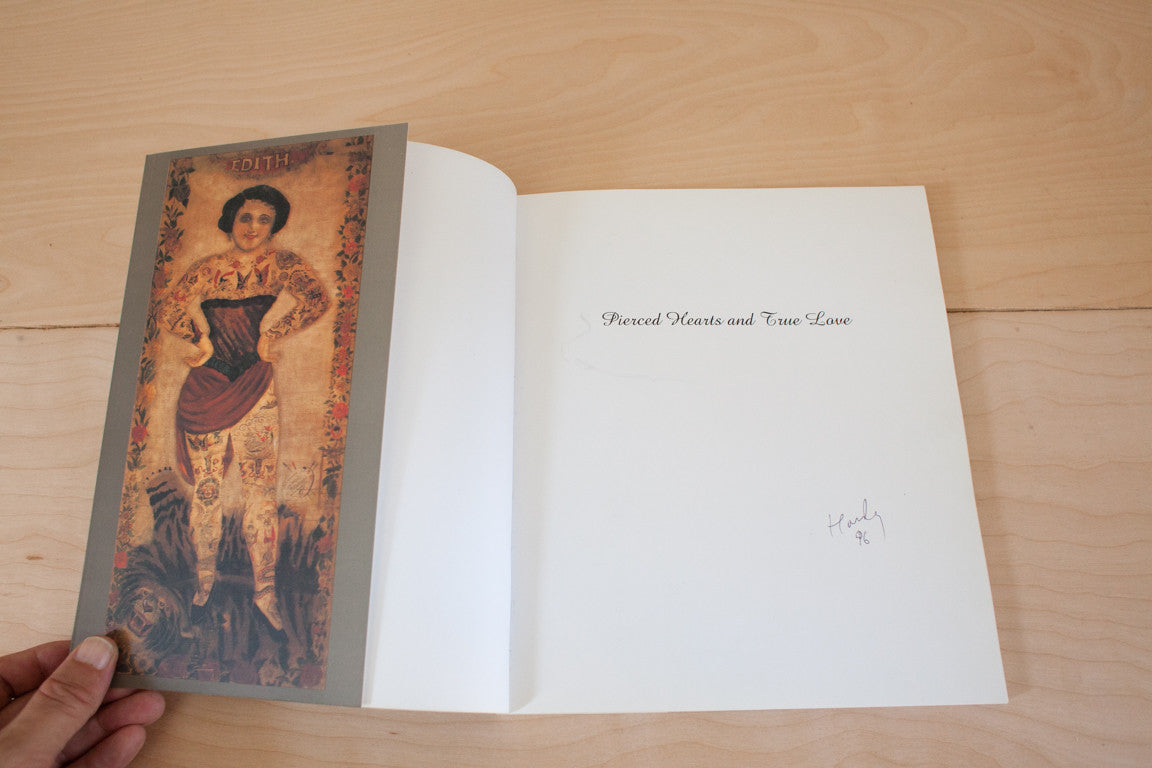 EDITH
Pierced Hearts and True Love
Hardy
96